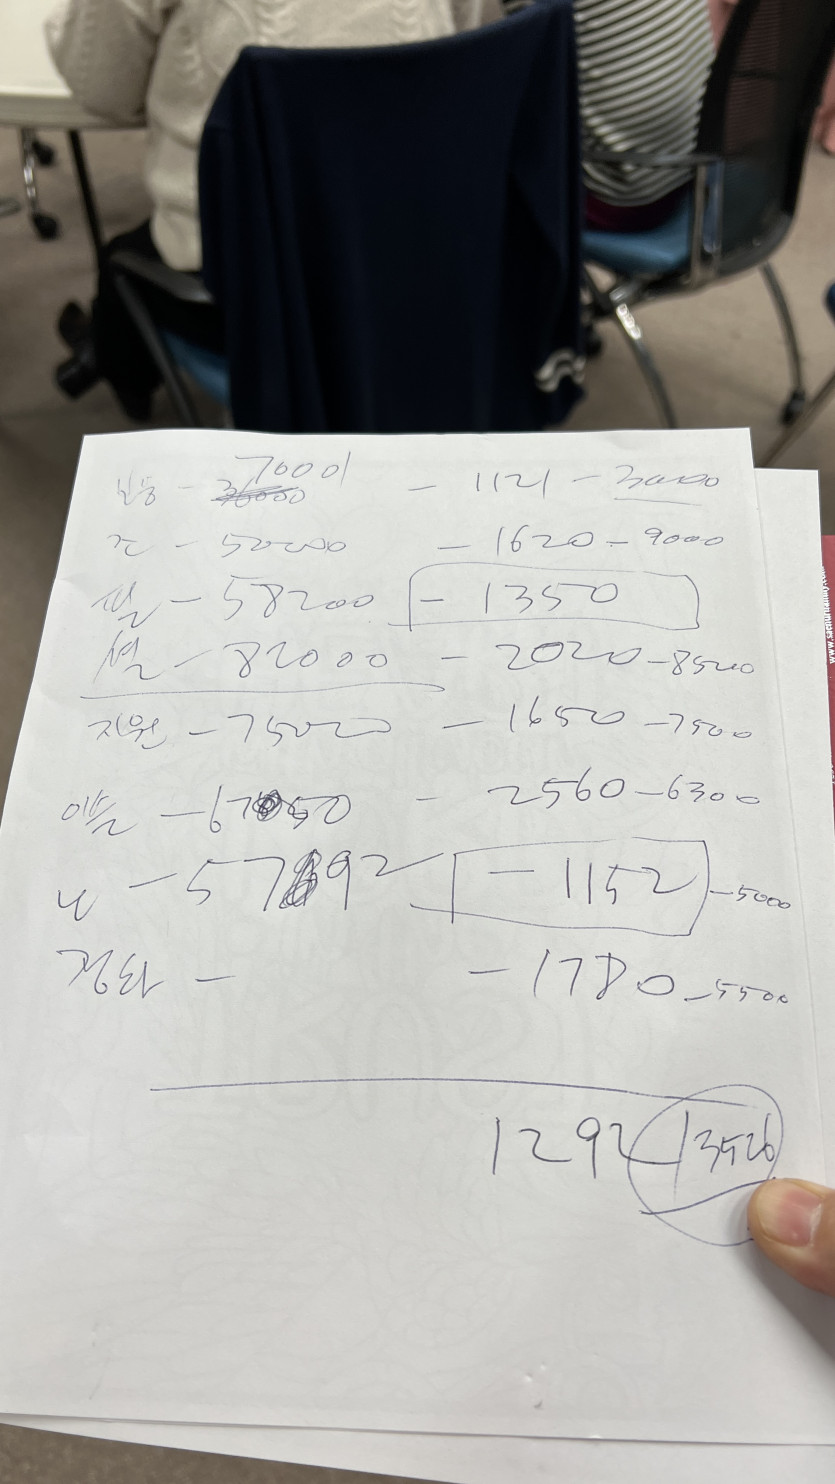 70001
36000 - 1121 - 3000
- 50000 - 1620 - 9000
- 58200 - 1350
- 82000 - 2020 - 8500
지원 - 75000 - 1650 - 7500
- 67050 - 2560 - 6300
나 - 57892 - 1152 - 5000
정화 - - 1780 - 5500
1292 13526